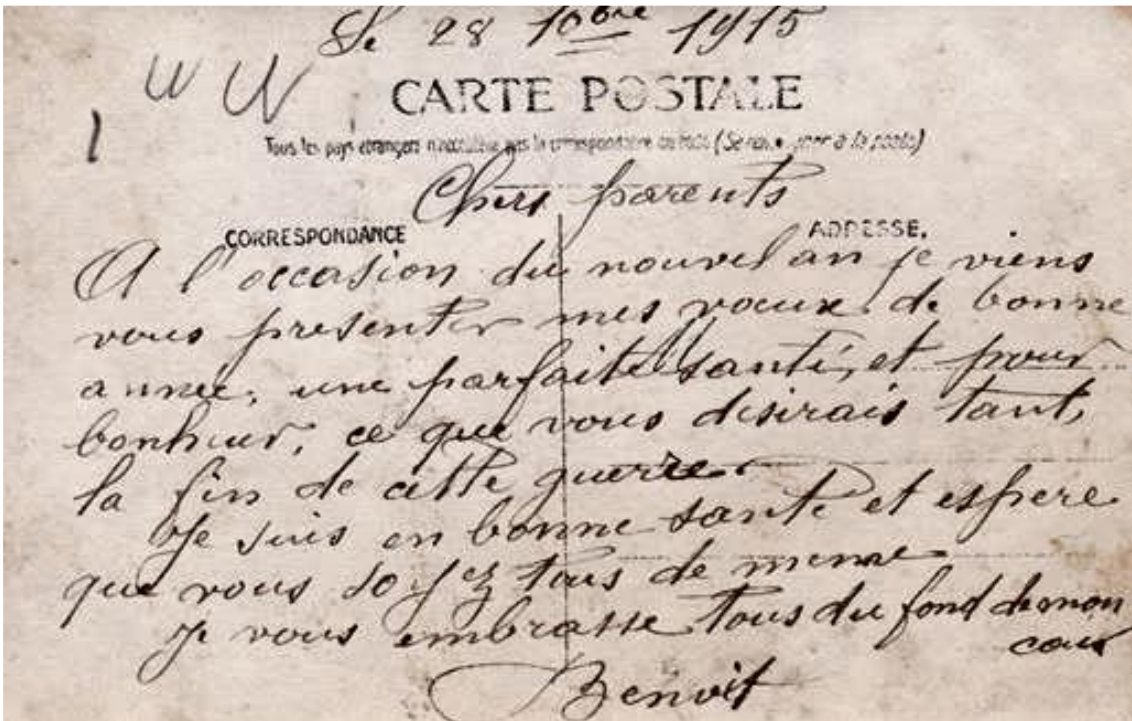 Le 28 10bre 1915
W W
1
CARTE POSTALE
Tous les pays étrangers n'acceptent pas la correspondance au recto (Se renseigner à la poste)
Chers parents
CORRESPONDANCE
ADRESSE.
A l'occasion du nouvel an je viens
vous presenter mes vœux de bonne
année, une parfaite santé, et pour
bonheur, ce que vous desirais tant,
la fin de cette guerre.
Je suis en bonne santé et espere
que vous soyez tous de meme
Je vous embrasse tous du fond de mon
cœur
Benoit